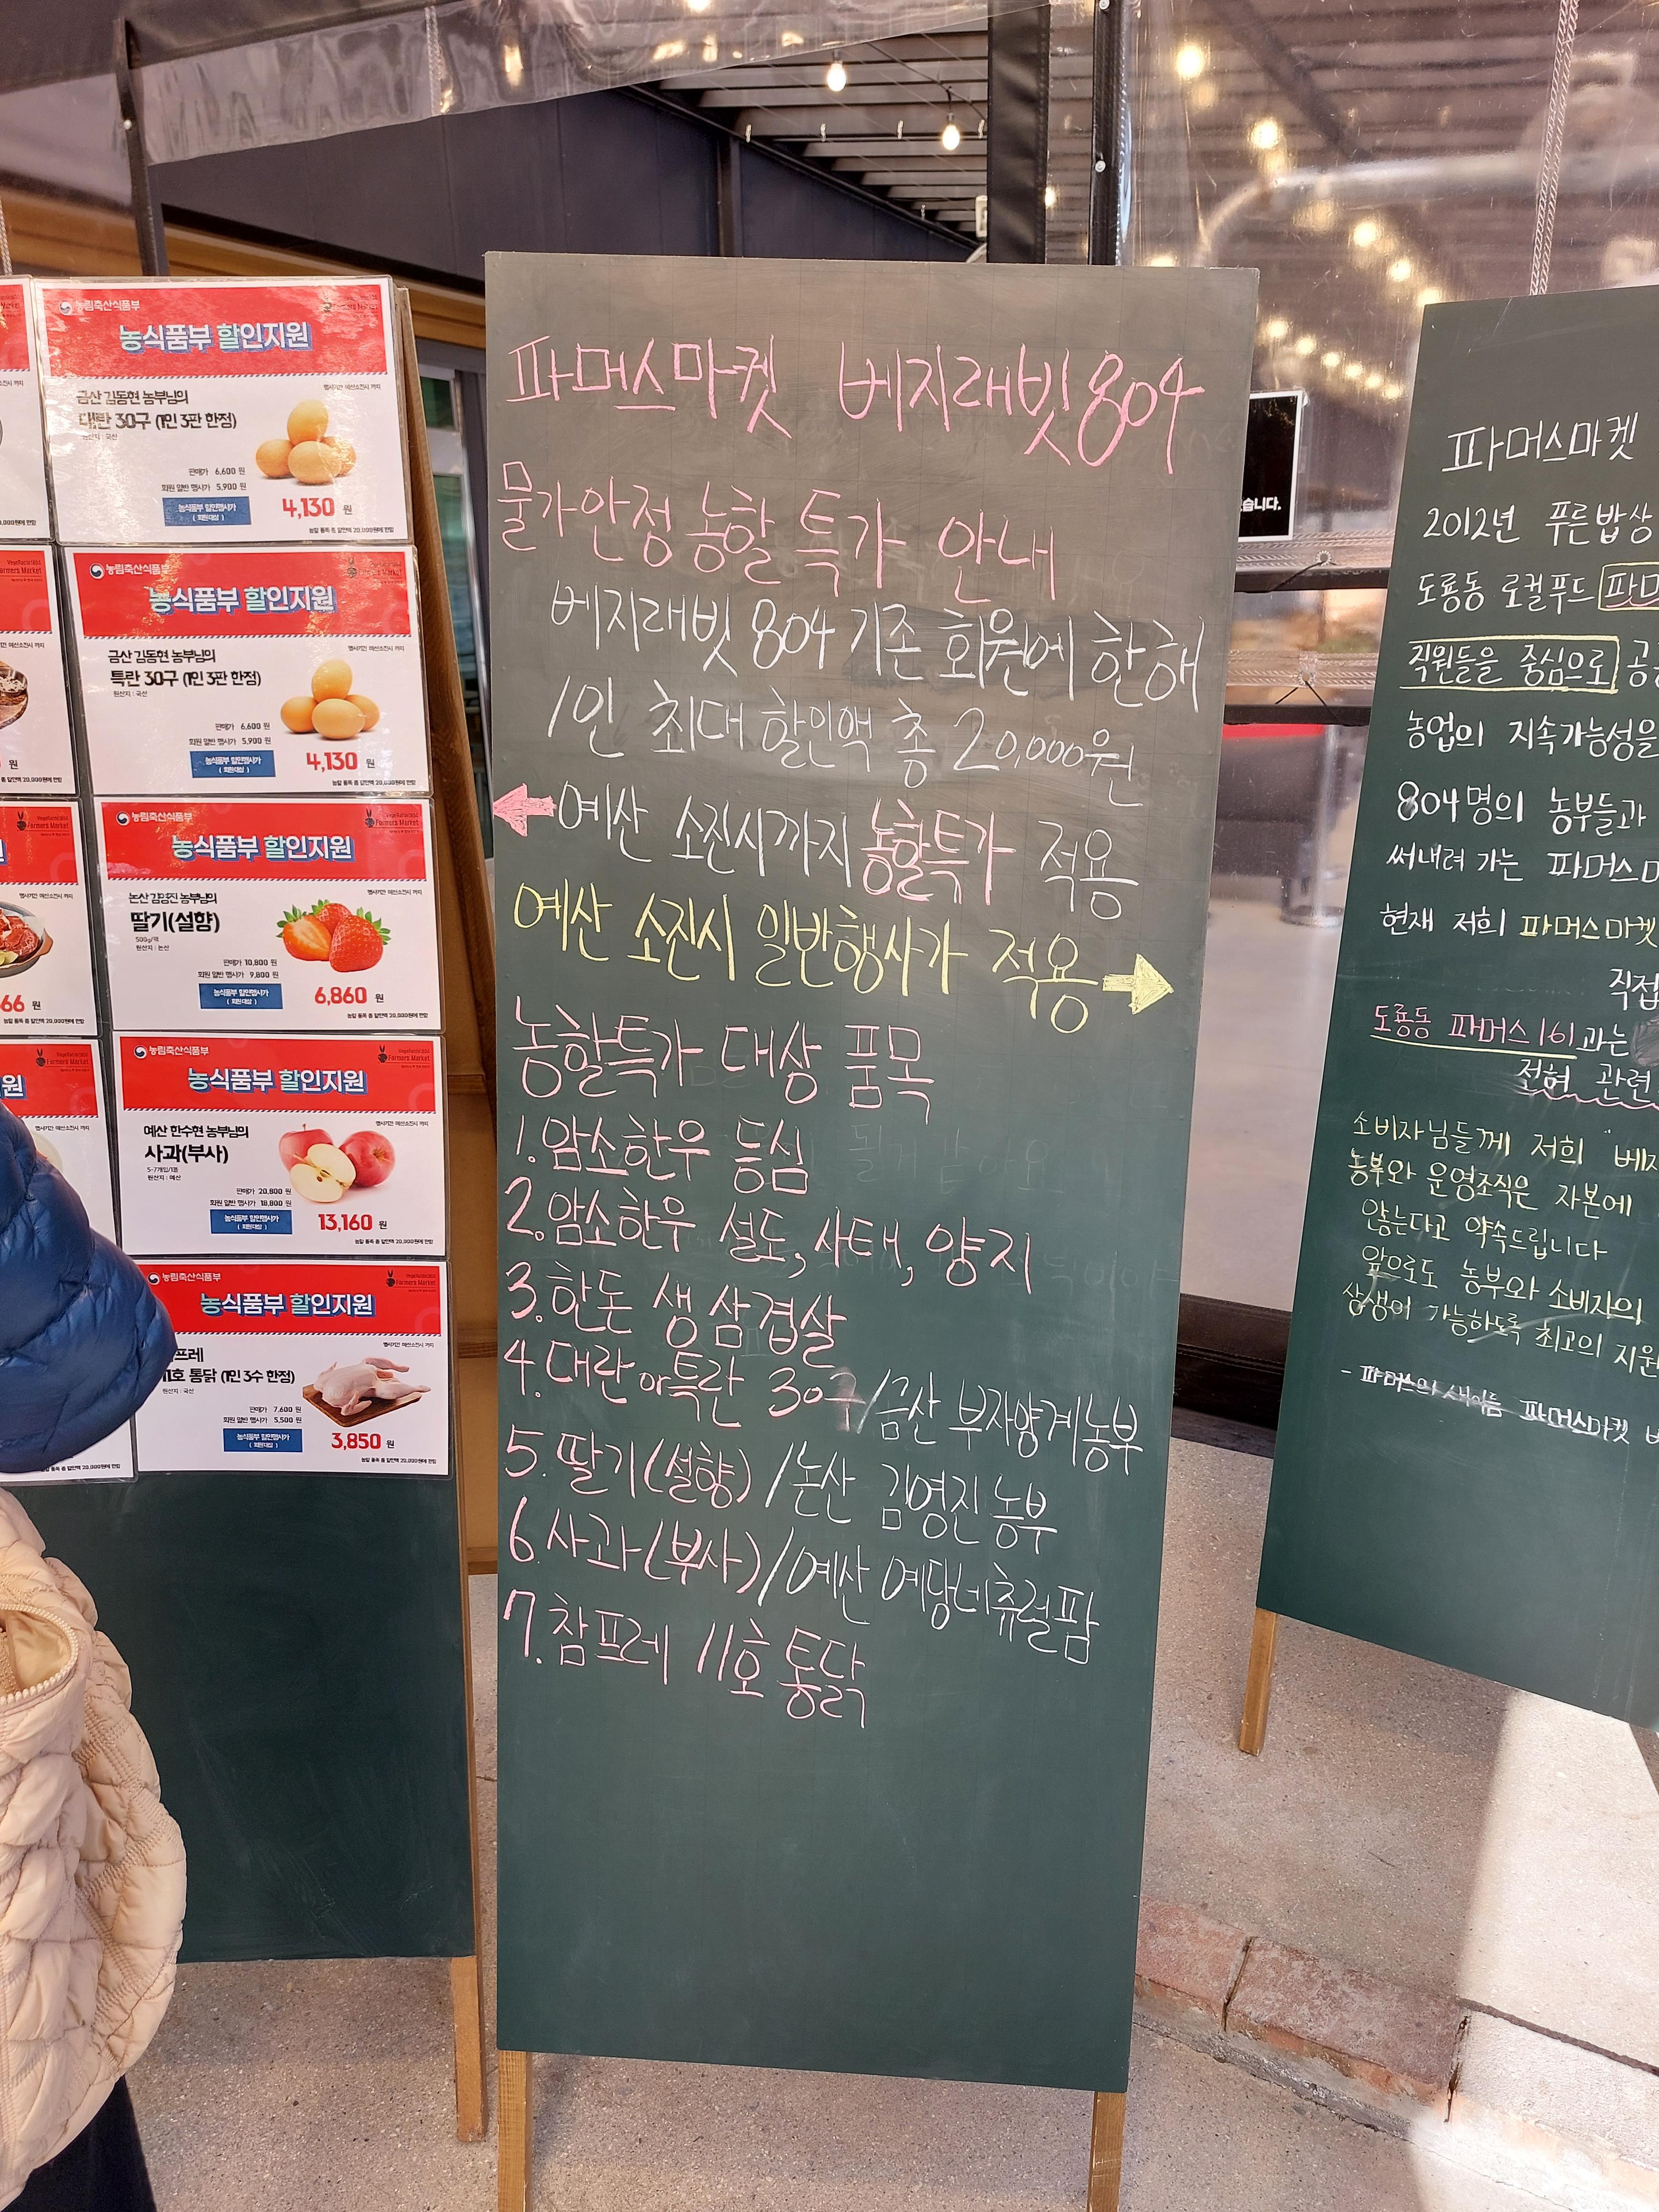 농림축산식품부
농식품부 할인지원
행사기간 예산소진시 까지
금산 김동현 농부님의
대란 30구 (1인 3판 한정)
원산지 : 국산
판매가 6,600 원
회원 일반 행사가 5,900 원
농식품부 할인행사가
( 회원대상 )
4,130 원
농할 품목 총 할인액 20,000원에 한함
농림축산식품부
농식품부 할인지원
행사기간 예산소진시 까지
금산 김동현 농부님의
특란 30구 (1인 3판 한정)
원산지 : 국산
판매가 6,600 원
회원 일반 행사가 5,900 원
농식품부 할인행사가
( 회원대상 )
4,130 원
농할 품목 총 할인액 20,000원에 한함
농림축산식품부
VegeRabbit804
Farmers Market
농식품부 할인지원
행사기간 예산소진시 까지
논산 김영진 농부님의
딸기(설향)
500g/팩
원산지 : 논산
판매가 10,800 원
회원 일반 행사가 9,800 원
농식품부 할인행사가
( 회원대상 )
6,860 원
농할 품목 총 할인액 20,000원에 한함
농림축산식품부
VegeRabbit804
Farmers Market
농식품부 할인지원
행사기간 예산소진시 까지
예산 한수현 농부님의
사과(부사)
5-7개입/1봉
원산지 : 예산
판매가 20,800 원
회원 일반 행사가 18,800 원
농식품부 할인행사가
( 회원대상 )
13,160 원
농할 품목 총 할인액 20,000원에 한함
농림축산식품부
VegeRabbit804
Farmers Market
농식품부 할인지원
행사기간 예산소진시 까지
프레
11호 통닭 (1인 3수 한정)
원산지 : 국산
판매가 7,600 원
회원 일반 행사가 5,500 원
농식품부 할인행사가
( 회원대상 )
3,850 원
농할 품목 총 할인액 20,000원에 한함
파머스마켓 베지래빗804
물가안정 농할 특가 안내
베지래빗 804 기존 회원에 한해
1인 최대 할인액 총 20,000원
예산 소진시까지 농할특가 적용
예산 소진시 일반행사가 적용
농할특가 대상 품목
1. 암소한우 등심
2. 암소한우 설도, 사태, 양지
3. 한돈 생삼겹살
4. 대란 or 특란 30구/금산 부자양계농부
5. 딸기(설향)/논산 김영진 농부
6. 사과(부사)/예산 예당네츄럴팜
7. 참프레 11호 통닭
습니다.
파머스마켓
2012년 푸른밥상
도룡동 로컬푸드 파머
직원들을 중심으로 공
농업의 지속가능성을
804명의 농부들과
써내려 가는 파머스
현재 저희 파머스마켓
직접
도룡동 파머스161과는
전혀 관련
소비자님들께 저희 "베지
농부와 운영조직은 자본에
않는다고 약속드립니다
앞으로도 농부와 소비자의
상생이 가능하도록 최고의 지원
- 파머스의 새이름 파머스마켓